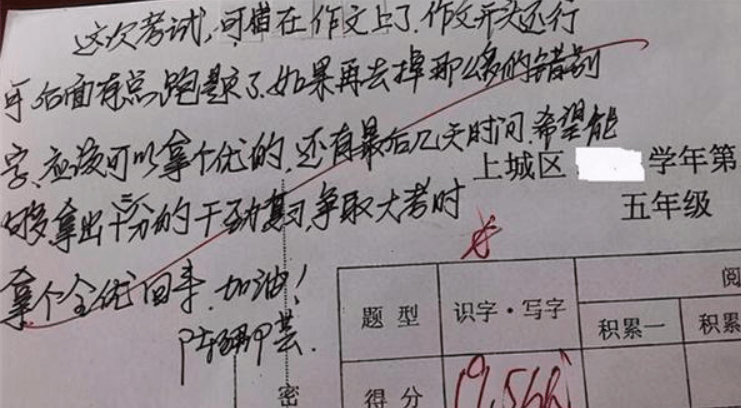 这次考试,可惜在作文上了.作文开头还行
可后面有点跑题了.如果再去掉那么多的错别
字、应该可以拿个优的.还有最后几天时间.希望能
够拿出十二分的干劲复习.争取大考时
拿个全优回来.加油!
上城区 学年第
五年级
题 型
识字·写字
阅
积累一
积累
得 分
19.5
密